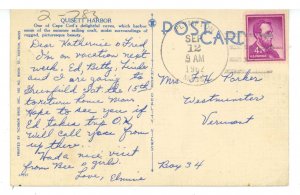 QUISETT HARBOR
One of Cape Cod's delightful coves, which harbor
some of the summer sailing craft, amid surroundings of
rugged, picturesque beauty.
POST CARD
SEP
12
9 AM
4¢
Dear Katherine & Fred,
I'm on vacation next
week. Ed, Betty, Linda
and I are going to
Greenfield Sat the 15th
to return home Mon.
Hope to see you if
Ed takes trip O.K.
Will call you from
up there.
Had a nice visit
from Bee & girls.
Love, Elmire
Mrs F. H. Parker
Westminster
Vermont
Box 34